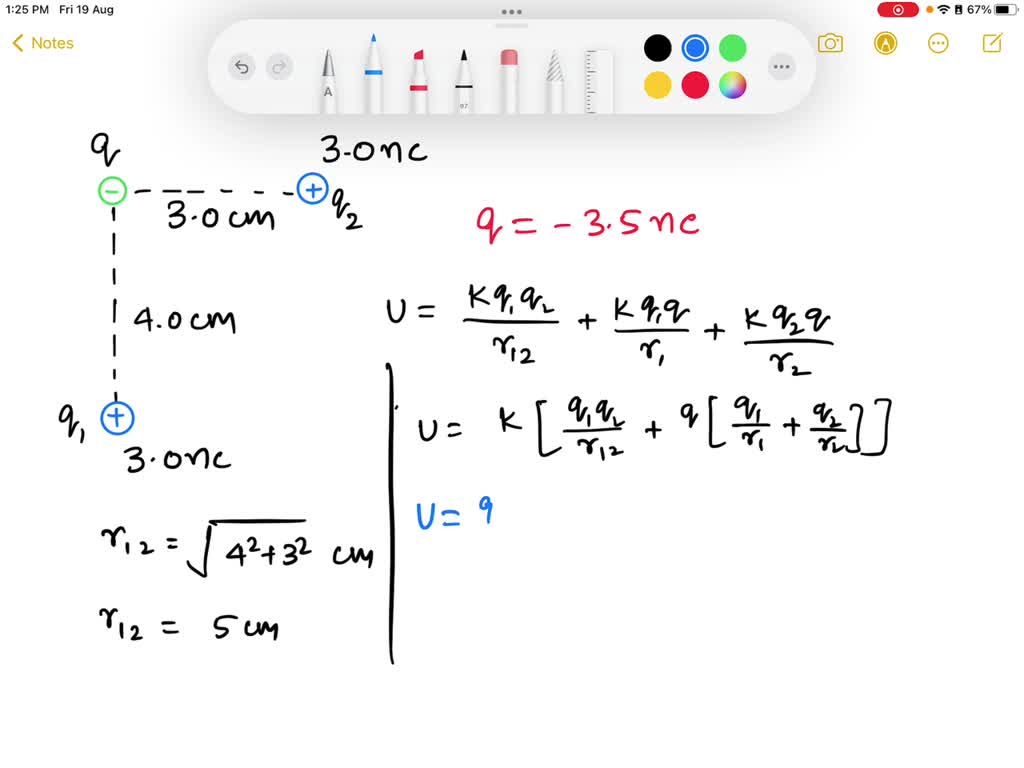 1:25 PM Fri 19 Aug
67%
Notes
A
97
q
3.0nc
q2
3.0 cm
q = - 3.5 nc
4.0 cm
U = Kq1q2/r12 + Kq1q/r1 + Kq2q/r2
q1
3.0nc
U = K [q1q2/r12 + q[q1/r1 + q2/r2]]
U = 9
r12 = √4²+3² cm
r12 = 5 cm